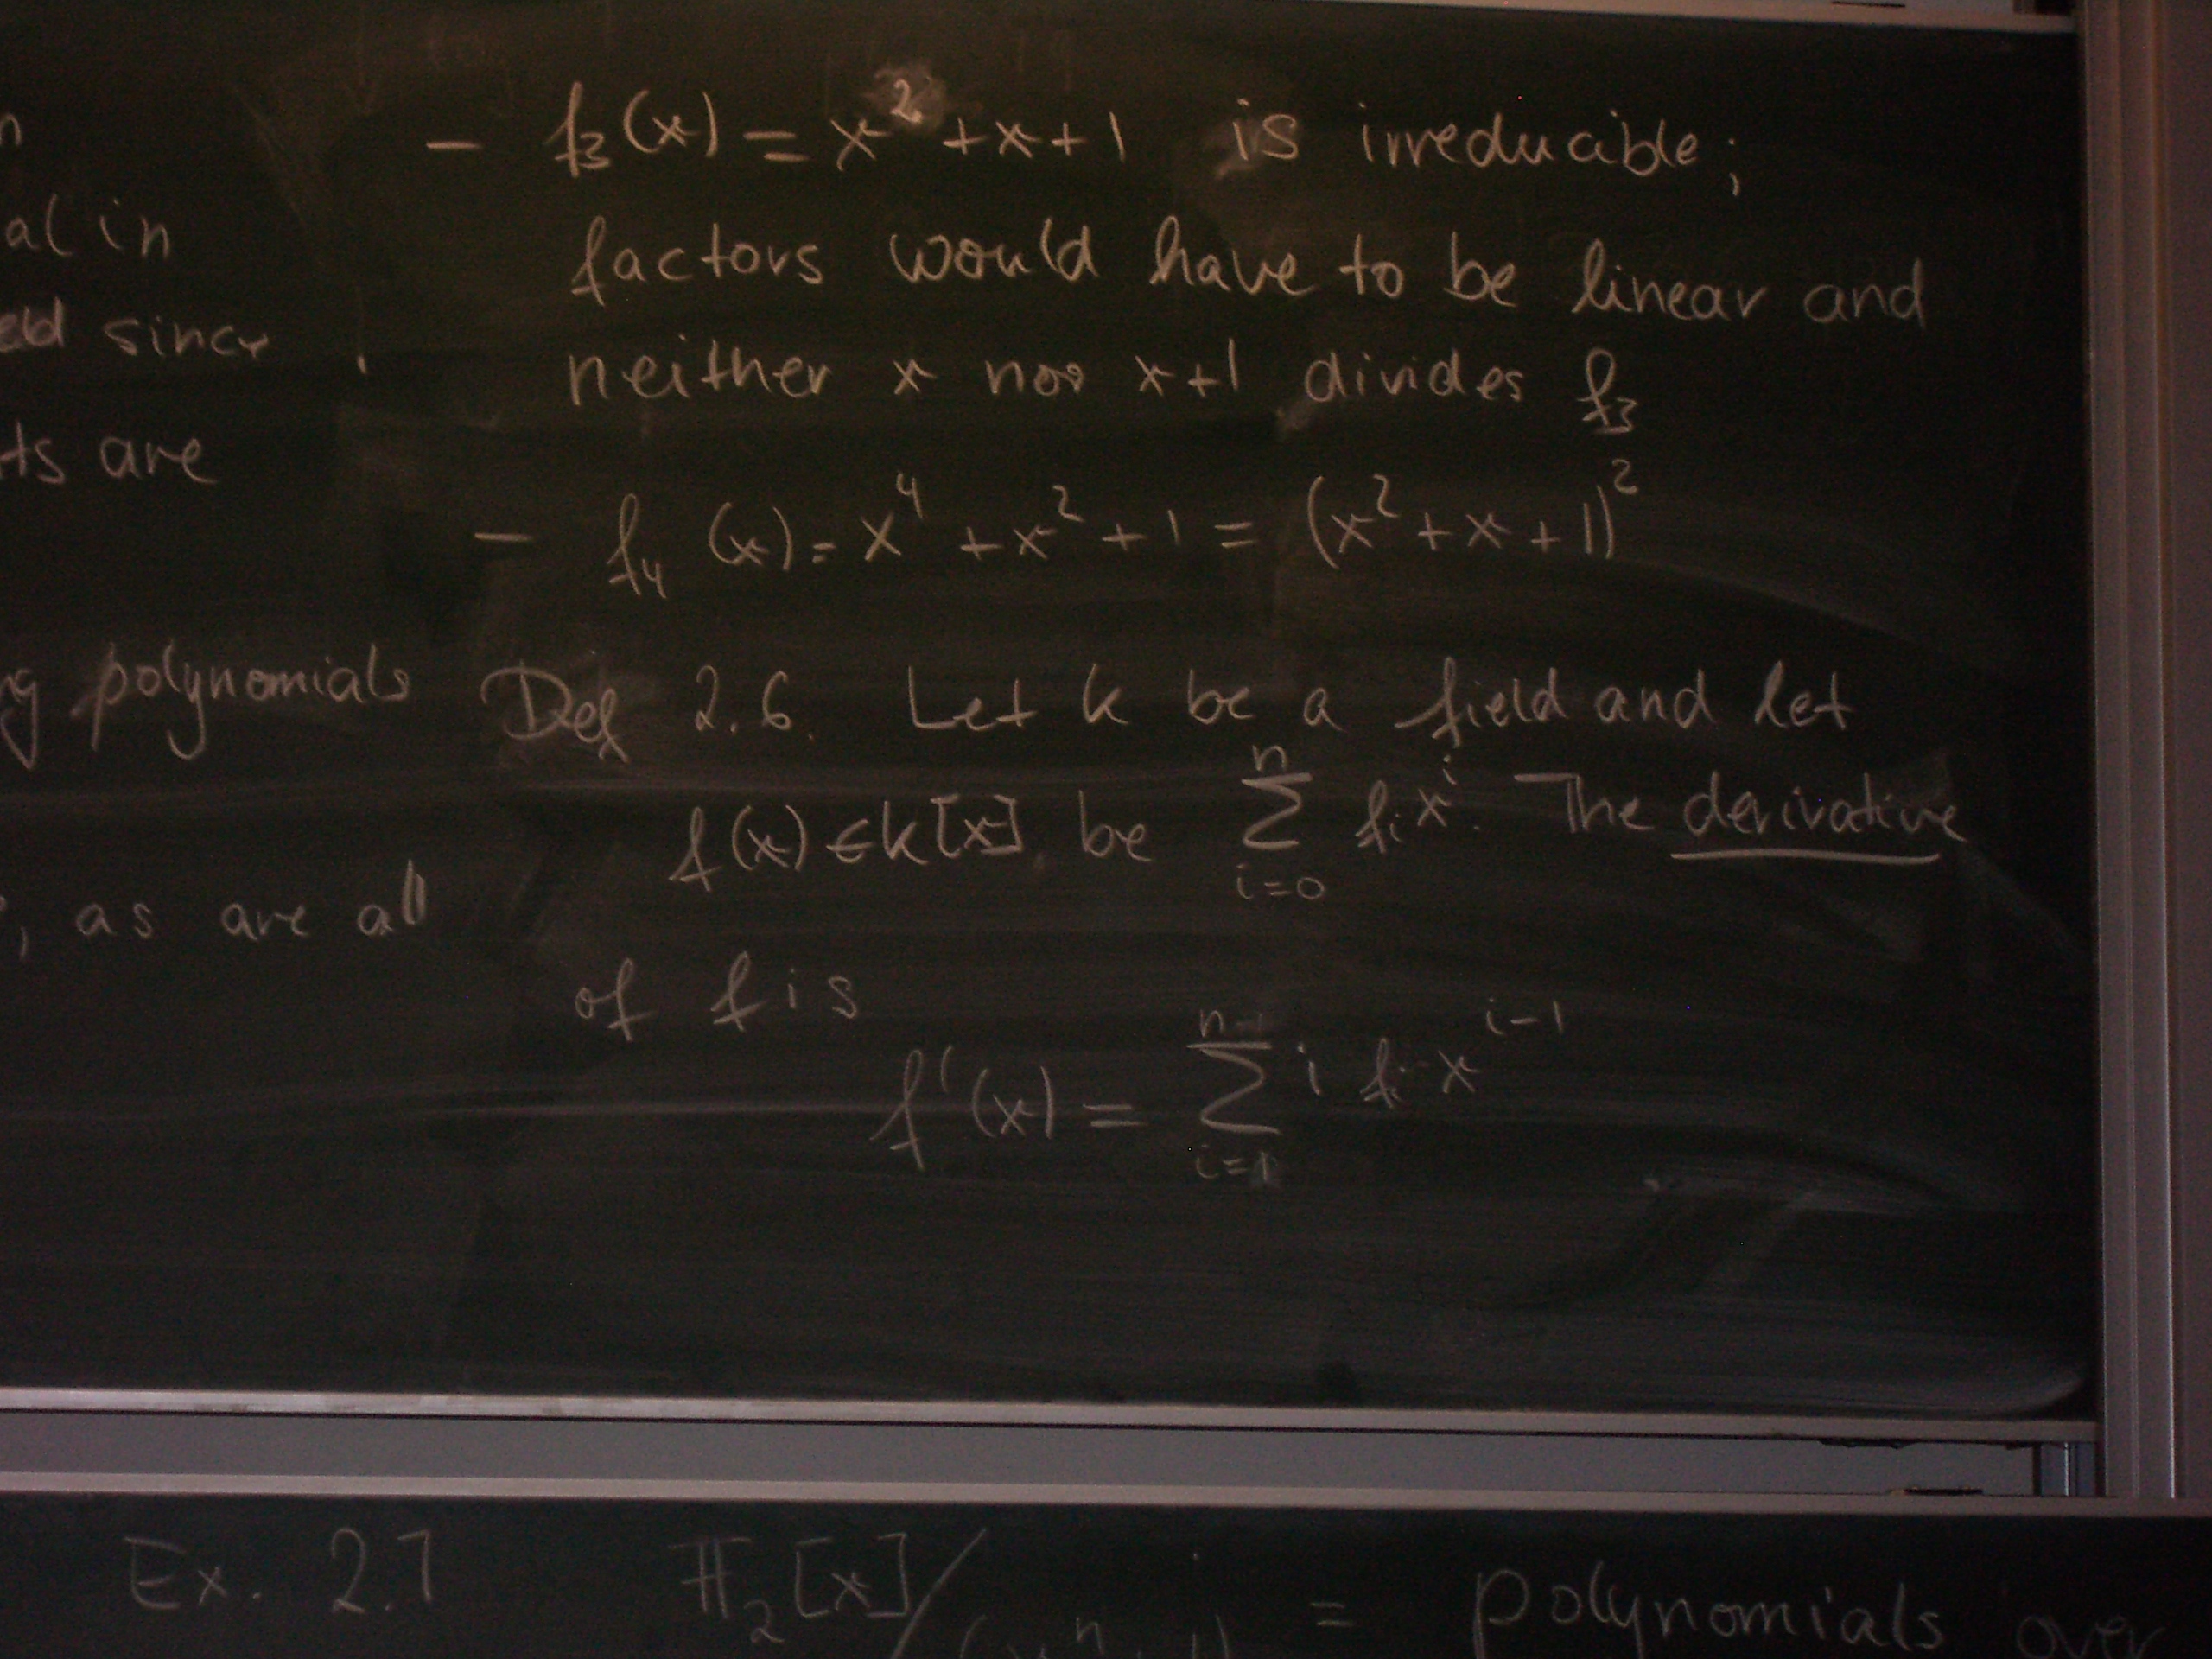 n
al in
eld since
ts are
ng polynomials
, as are all
- f₃(x) = x² + x + 1 is irreducible;
factors would have to be linear and
neither x nor x+1 divides f₃
- f₄(x) = x⁴ + x² + 1 = (x² + x + 1)²
Def 2.6. Let k be a field and let
f(x) ∈ k[x] be ∑_{i=0}^{n} f_i x^i. The derivative
of f is
f'(x) = ∑_{i=1}^{n-1} i f_i x^{i-1}
Ex. 2.7 𝔽₂[x]/ = polynomials over